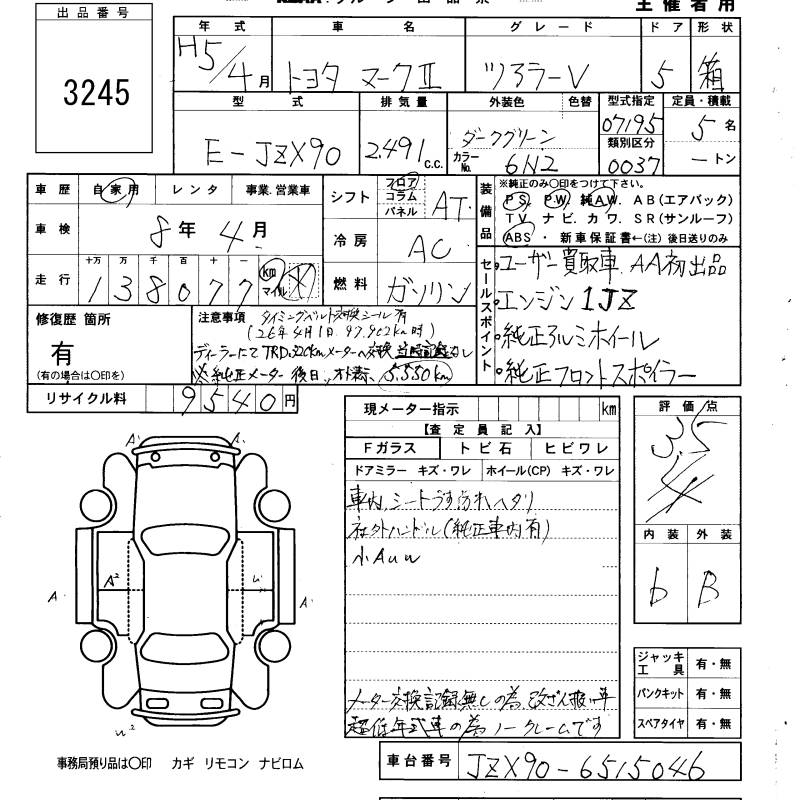 主催者用
出品番号
3245
年式 車名 グレード ドア 形状
H5/4月 トヨタ マークⅡ ツアラーV 5 箱
型式 排気量 外装色 色替 型式指定 定員・積載
E-JZX90 2.491c.c. ダークグリーン 07195 5名
カラーNo. 6N2 類別区分 0037 ートン
車歴 自家用 レンタ 事業.営業車
車検 8年4月
走行 十万 万 千 百 十 一
138077 km マイル
シフト フロア コラム パネル AT
冷房 AC
燃料 ガソリン
装備品 ※純正のみ〇印をつけて下さい。
PS. PW. 純AW. AB(エアバック)
TV ナビ. カワ. SR(サンルーフ)
ABS. 新車保証書←(注)後日送りのみ
セールスポイント
・ユーザー買取車.AA初出品
・エンジン1JZ
・純正アルミホイール
・純正フロントスポイラー
修復歴 箇所
有
(有の場合は〇印を)
注意事項 タイミングベルト交換シール有
(26年4月1日 97.902km時)
ディーラーにてTRD320kmメーターへ交換 当時記録なし
※純正メーター後日
5.550km
リサイクル料 9540円
現メーター指示 km
【査定員記入】
Fガラス トビ石 ヒビワレ
ドアミラー キズ・ワレ ホイール(CP) キズ・ワレ
車内.シートうす汚れヘタリ
社外ハンドル(純正車内有)
小AUW
メーター交換記録無しの為.改ざん扱い車
超低年式車の為ノークレームです
評価点
3.5/4
内装 外装
b B
ジャッキ工具 有・無
パンクキット 有・無
スペアタイヤ 有・無
A' A'
A² U'
A' A'
W²
事務局預り品は〇印 カギ リモコン ナビロム
車台番号 JZX90-6515046